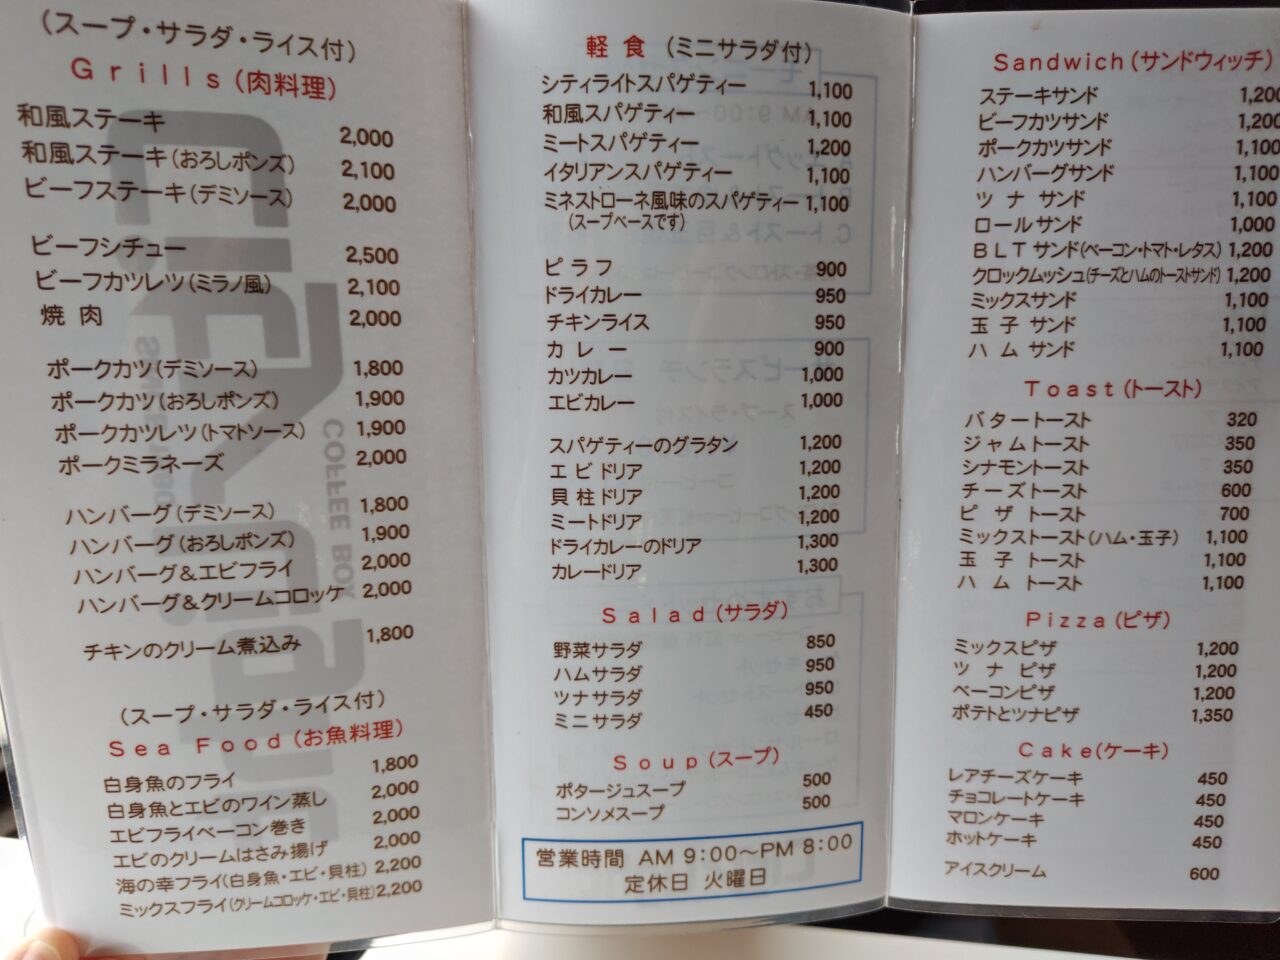 （スープ・サラダ・ライス付）
Grills（肉料理）
和風ステーキ 2,000
和風ステーキ（おろしポンズ） 2,100
ビーフステーキ（デミソース） 2,000
ビーフシチュー 2,500
ビーフカツレツ（ミラノ風） 2,100
焼肉 2,000
ポークカツ（デミソース） 1,800
ポークカツ（おろしポンズ） 1,900
ポークカツレツ（トマトソース） 1,900
ポークミラネーズ 2,000
ハンバーグ（デミソース） 1,800
ハンバーグ（おろしポンズ） 1,900
ハンバーグ＆エビフライ 2,000
ハンバーグ＆クリームコロッケ 2,000
チキンのクリーム煮込み 1,800
（スープ・サラダ・ライス付）
Sea Food（お魚料理）
白身魚のフライ 1,800
白身魚とエビのワイン蒸し 2,000
エビフライベーコン巻き 2,000
エビのクリームはさみ揚げ 2,000
海の幸フライ（白身魚・エビ・貝柱） 2,200
ミックスフライ（クリームコロッケ・エビ・貝柱） 2,200
軽食（ミニサラダ付）
シティライトスパゲティー 1,100
和風スパゲティー 1,100
ミートスパゲティー 1,200
イタリアンスパゲティー 1,100
ミネストローネ風味のスパゲティー 1,100
（スープベースです）
ピラフ 900
ドライカレー 950
チキンライス 950
カレー 900
カツカレー 1,000
エビカレー 1,000
スパゲティーのグラタン 1,200
エビドリア 1,200
貝柱ドリア 1,200
ミートドリア 1,200
ドライカレーのドリア 1,300
カレードリア 1,300
Salad（サラダ）
野菜サラダ 850
ハムサラダ 950
ツナサラダ 950
ミニサラダ 450
Soup（スープ）
ポタージュスープ 500
コンソメスープ 500
営業時間 AM 9:00～PM 8:00
定休日 火曜日
Sandwich（サンドウィッチ）
ステーキサンド 1,200
ビーフカツサンド 1,200
ポークカツサンド 1,100
ハンバーグサンド 1,100
ツナサンド 1,100
ロールサンド 1,000
BLTサンド（ベーコン・トマト・レタス） 1,200
クロックムッシュ（チーズとハムのトーストサンド） 1,200
ミックスサンド 1,100
玉子サンド 1,100
ハムサンド 1,100
Toast（トースト）
バタートースト 320
ジャムトースト 350
シナモントースト 350
チーズトースト 600
ピザトースト 700
ミックストースト（ハム・玉子） 1,100
玉子トースト 1,100
ハムトースト 1,100
Pizza（ピザ）
ミックスピザ 1,200
ツナピザ 1,200
ベーコンピザ 1,200
ポテトとツナピザ 1,350
Cake（ケーキ）
レアチーズケーキ 450
チョコレートケーキ 450
マロンケーキ 450
ホットケーキ 450
アイスクリーム 600